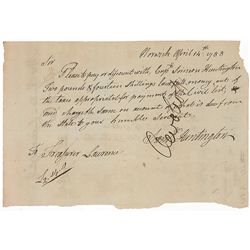 Norwich April 14th 1788
Sir
Please to pay or discount with, Capt Simeon Huntington
Two pounds & fourteen shillings lawfull money out of
the taxes appropriated for payment of the Civil list,
and charge the same on account of what is due from
the State to your humble servant
Huntington
To Treasurer Lawrence